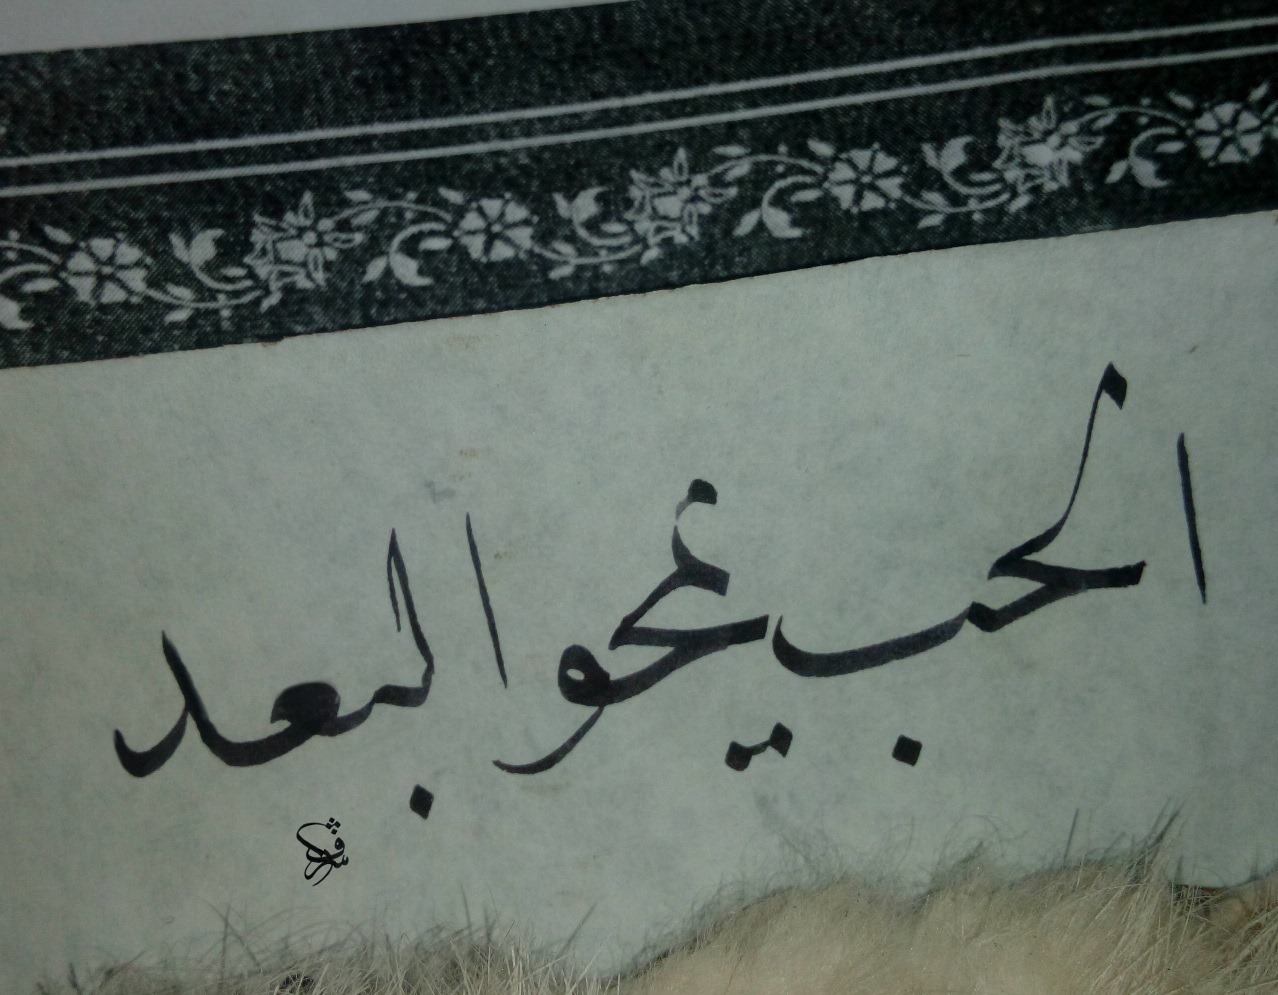 الحب يمحو البعد